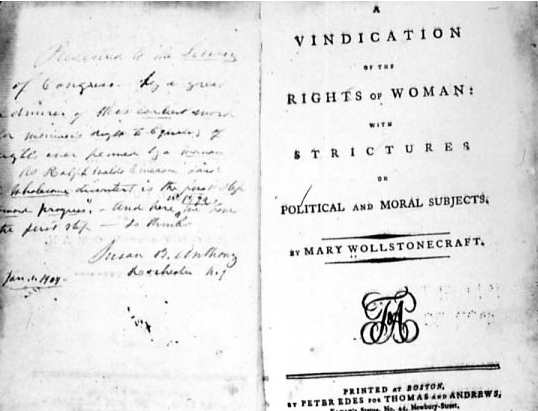 Presented to the Library
of Congress by a great
admirer of this earliest word
for woman's right to Equality of
rights ever penned by a woman
As Ralph Waldo Emerson said
"Wholesome discontent is the first step
progress" - And here, in 1792, we have
the first step - So thinks
Susan B. Anthony
Rochester N.Y.
Jan. 1, 1904.
A
VINDICATION
OF THE
RIGHTS OF WOMAN:
WITH
STRICTURES
ON
POLITICAL AND MORAL SUBJECTS.
BY MARY WOLLSTONECRAFT.
PRINTED AT BOSTON,
BY PETER EDES FOR THOMAS AND ANDREWS,
Statue, No. 45, Newbury-Street,